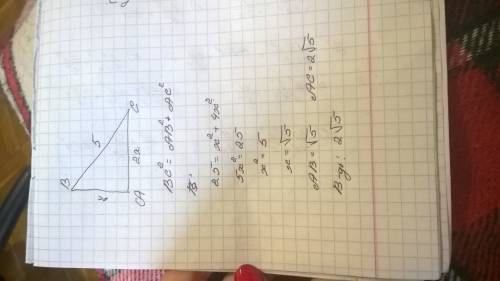 B
5
x
A
2x
C
BC² = AB² + AC²
25 = x² + 4x²
5x² = 25
x² = 5
x = √5
AB = √5 AC = 2√5
В-дь: 2√5